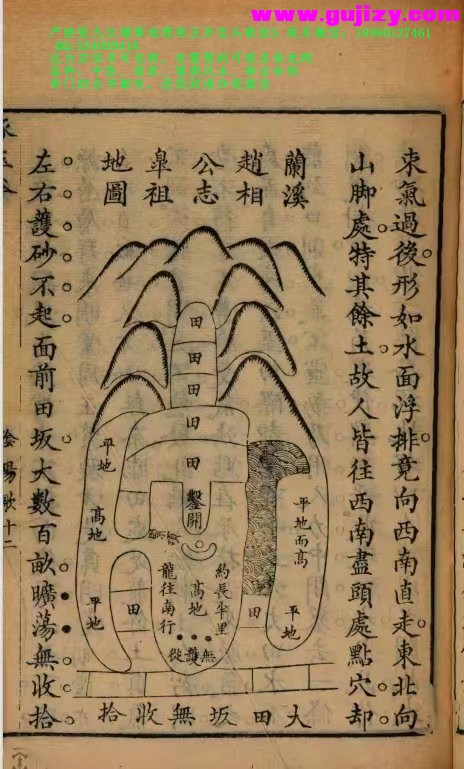 www.gujizy.com
束氣過後形如水面浮排竟向西南直走東北向
山脚處特其餘土故人皆往西南盡頭處點穴却
蘭溪
趙相
公志
臯祖
地圖
田
田
田
田
田
鑿開
平地
高地
平地
田
平地而高
約長半里
高地
龍往南行
無護從
田
平地
大田坂無收拾
左右護砂不起面前田坂大數百畝曠蕩無收拾
陰陽歌十二